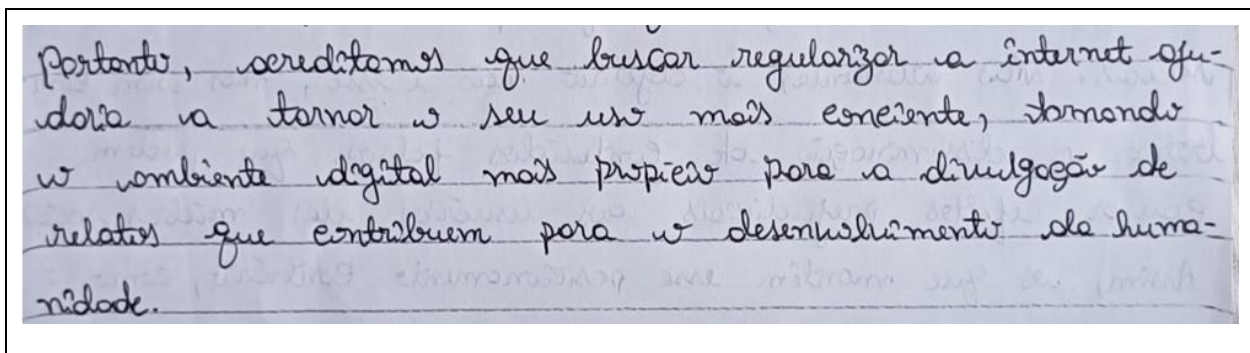 Portanto, acreditamos que buscar regularzar a internet aju-
daria a tornar o seu uso mais conciente, tornando
o ambiente digital mais propicio para a divulgação de
relatos que contribuem para o desenvolvimento da huma-
nidade.